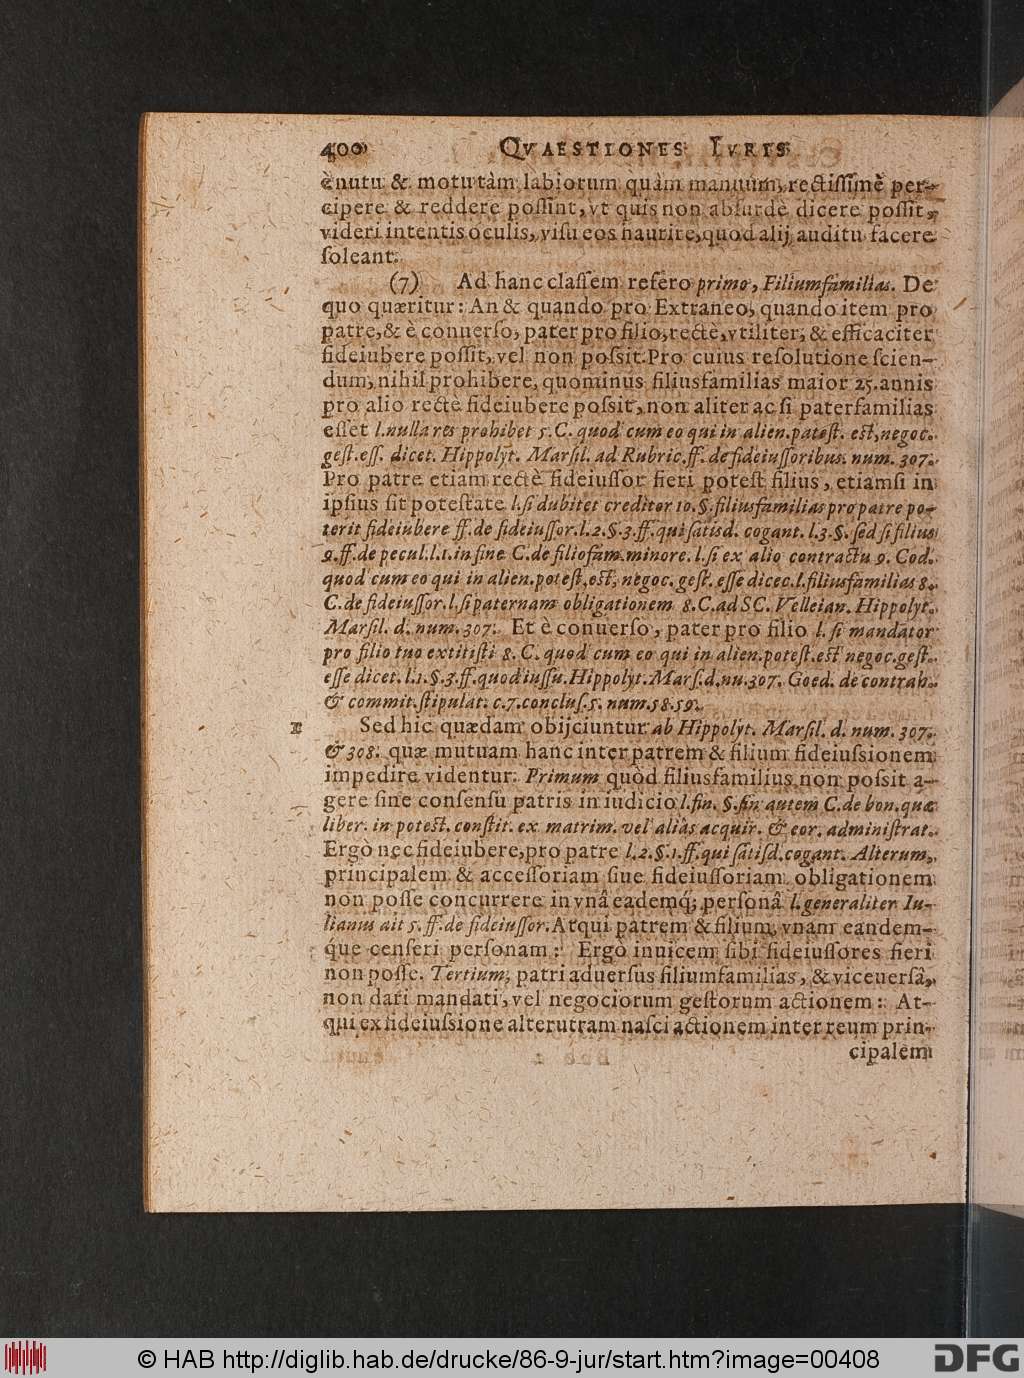 400 QVAESTIONES IVRIS
è nutu & motu tàm labiorum quàm manuum, rectiſſimè per-
cipere & reddere poſſint, vt quis non abſurdè dicere poſſit,
videri intentis oculis, viſu eos haurire, quod alij auditu facere
ſoleant.
(7) Ad hanc claſſem refero primo, Filiumfamilias. De
quo quæritur: An & quando pro Extraneo, quando item pro
patre, & è conuerſo, pater pro filio, rectè, vtiliter, & efficaciter
fideiubere poſſit, vel non poſsit. Pro cuius reſolutione ſcien-
dum, nihil prohibere, quominus filiusfamilias maior 25. annis
pro alio rectè fideiubere poſsit, non aliter ac ſi paterfamilias
eſſet l. nulla res prohibet 5. C. quod cum eo qui in alien. poteſt. eſt, negoc.
geſt. eſſ. dicet. Hippolyt. Marſil. ad Rubric. ff. de fideiuſſoribus. num. 307.
Pro patre etiam rectè fideiuſſor fieri poteſt filius, etiamſi in
ipſius ſit poteſtate l. ſi dubitet creditor 10. §. filiusfamilias pro patre po-
terit fideiubere ff. de fideiuſſor. l. 2. §. 3. ff. qui ſatisd. cogant. l. 3. §. ſed ſi filius
9. ff. de pecul. l. 1. in fine C. de filiofam. minore. l. ſi ex alio contractu 9. Cod.
quod cum eo qui in alien. poteſt. eſt, negoc. geſt. eſſe dicec. l. filiusfamilias 8.
C. de fideiuſſor. l. ſi paternam obligationem 8. C. ad SC. Velleian. Hippolyt.
Marſil. d. num. 307. Et è conuerſo, pater pro filio l. ſi mandator
pro filio tuo extitiſti 8. C. quod cum eo qui in alien. poteſt. eſt negoc. geſt.
eſſe dicet. l. 1. §. 3. ff. quod iuſſu. Hippolyt. Marſ. d. nu. 307. Goed. de contrah.
& commit. ſtipulat. c. 7. concluſ. 5. num. 58. 59.
I Sed hic quædam obijciuntur ab Hippolyt. Marſil. d. num. 307.
& 308. quæ mutuam hanc inter patrem & filium fideiuſsionem
impedire videntur: Primum quòd filiusfamilius non poſsit a-
gere ſine conſenſu patris in iudicio l. fin. §. fin autem C. de bon. quæ
liber. in poteſt. conſtit. ex matrim. vel aliàs acquir. & eor. adminiſtrat.
Ergò nec fideiubere, pro patre l. 2. §. 1. ff. qui ſatiſd. cogant. Alterum,
principalem & acceſſoriam ſiue fideiuſſoriam obligationem
non poſſe concurrere in vnâ eademq́; perſonâ l. generaliter Iu-
lianus ait 5. ff. de fideiuſſor. Atqui patrem & filium, vnam eandem-
que cenſeri perſonam: Ergò inuicem ſibi fideiuſſores fieri
non poſſe. Tertium, patri aduerſus filiumfamilias, & viceuerſâ,
non dari mandati, vel negociorum geſtorum actionem: At-
qui ex fideiuſsione alterutram naſci actionem inter reum prin-
cipalem
© HAB http://diglib.hab.de/drucke/86-9-jur/start.htm?image=00408 DFG